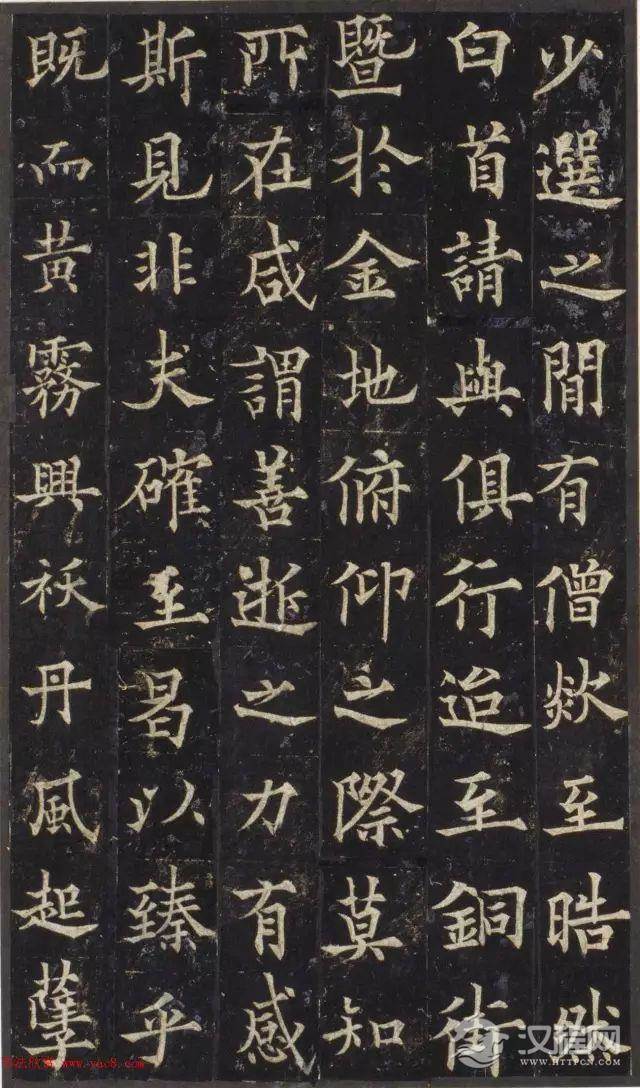 少選之間有僧欻至皓然
白首請與俱行迨至銅街
暨於金地俯仰之際莫知
所在咸謂善逝之力有感
斯見非夫確至曷以臻乎
既而黃霧興祅丹風起孽
书法欣赏 www.yac8.com
汉程网
WWW.HTTPCN.COM